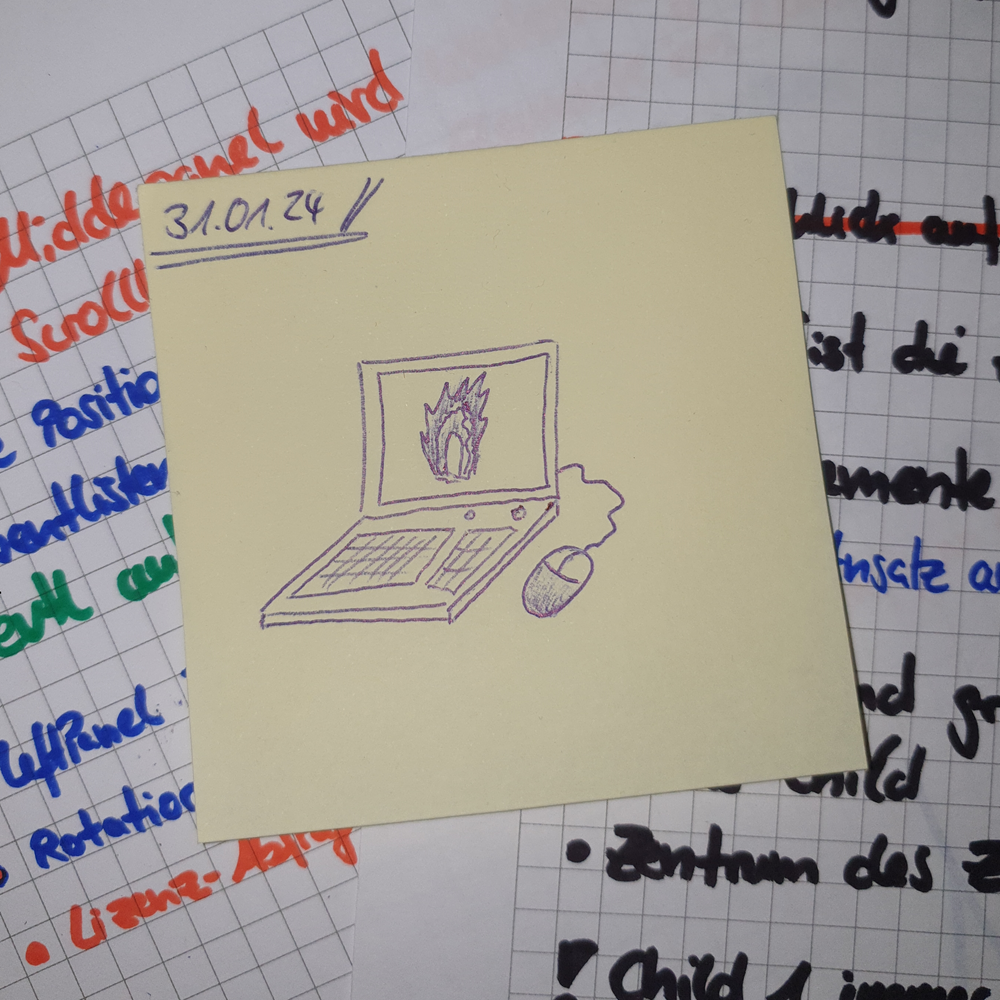 31.01.24
Middepanel wird
Scroll
Position
entlisten
evtl. auf
LeftPanel
Rotation
• Lizenz-Abfrage
Klick auf
ist die
emente
nsatz a
nd gr
Child
• Zentrum des Z
Child 1 immer